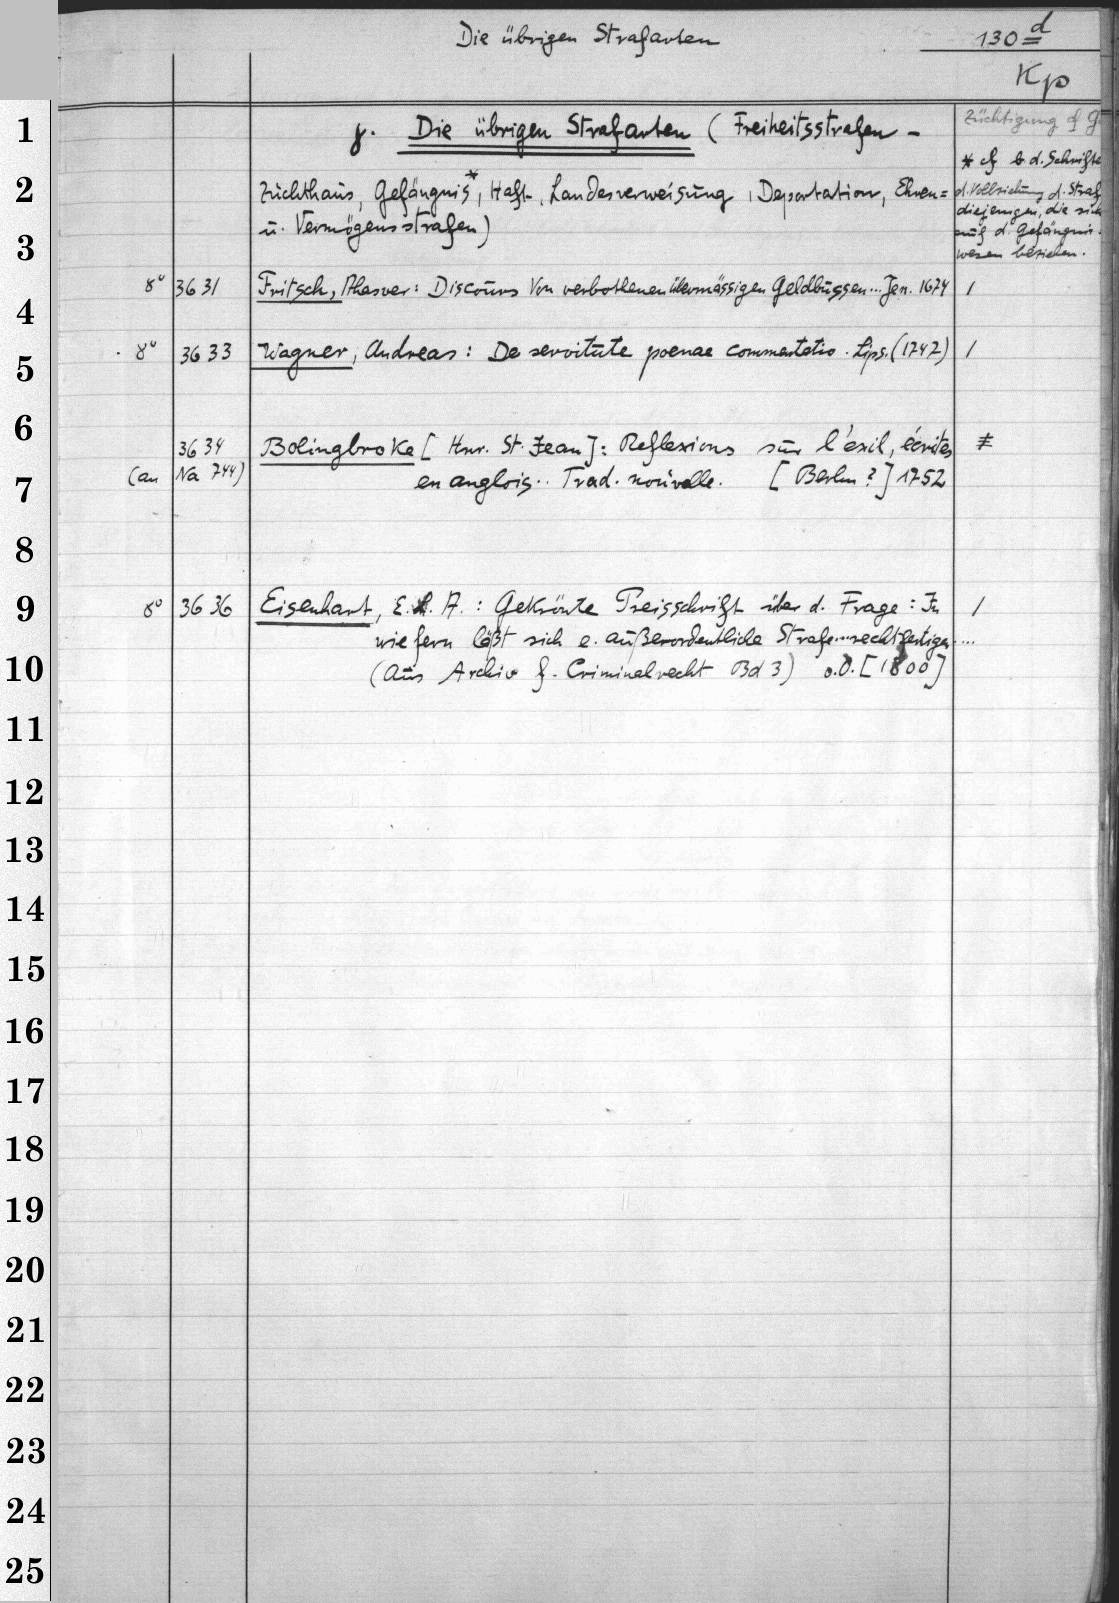 Die übrigen Strafarten
130 d
Kp
γ. Die übrigen Strafarten (Freiheitsstrafen -
Züchtigung cf
Zuchthaus, Gefängnis*, Haft, Landesverweisung, Deportation, Ehren=
u. Vermögensstrafen)
* cf b. d. Schrifte
d. Vollziehung d. Straf
diejenigen, die sich
auf d. Gefängnis-
wesen beziehen.
8° 3631 Fritsch, Ahasver: Discours Von verbothenen übermässigen Geldbussen... Jen. 1674 /
8° 3633 Wagner, Andreas: De servitute poenae commentatio. Lips. (1742) /
3634 Bolingbroke [Henr. St. Jean]: Reflexions sur l'éxil, écrites
(an Na 744) en anglois.. Trad. nouvelle. [Berlin?] 1752
8° 3636 Eisenhart, E. L. A.: Gekrönte Preisschrift über d. Frage: In /
wie fern läßt sich e. außerordentliche Strafe...rechtfertigen....
(Aus Archiv f. Criminalrecht Bd 3) o.O. [1800]
1
2
3
4
5
6
7
8
9
10
11
12
13
14
15
16
17
18
19
20
21
22
23
24
25